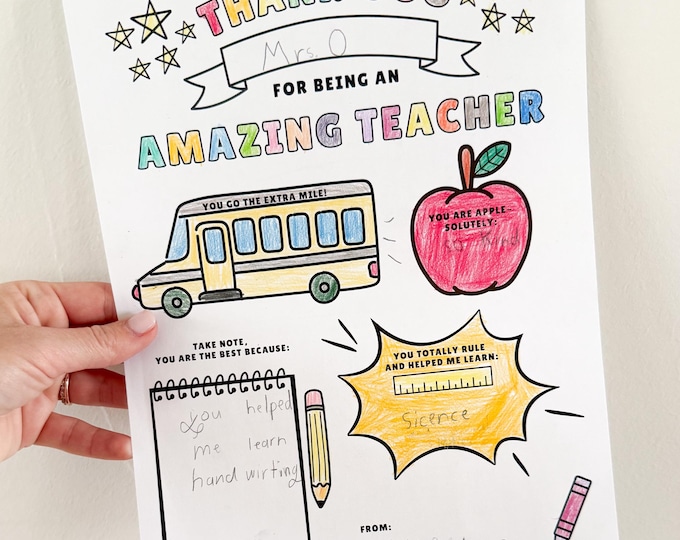 THANK YOU
Mrs. O
FOR BEING AN
AMAZING TEACHER
YOU GO THE EXTRA MILE!
YOU ARE APPLE-
SOLUTELY:
so kind
TAKE NOTE,
YOU ARE THE BEST BECAUSE:
you helped
me learn
hand wirting
YOU TOTALLY RULE
AND HELPED ME LEARN:
Sicence
FROM: